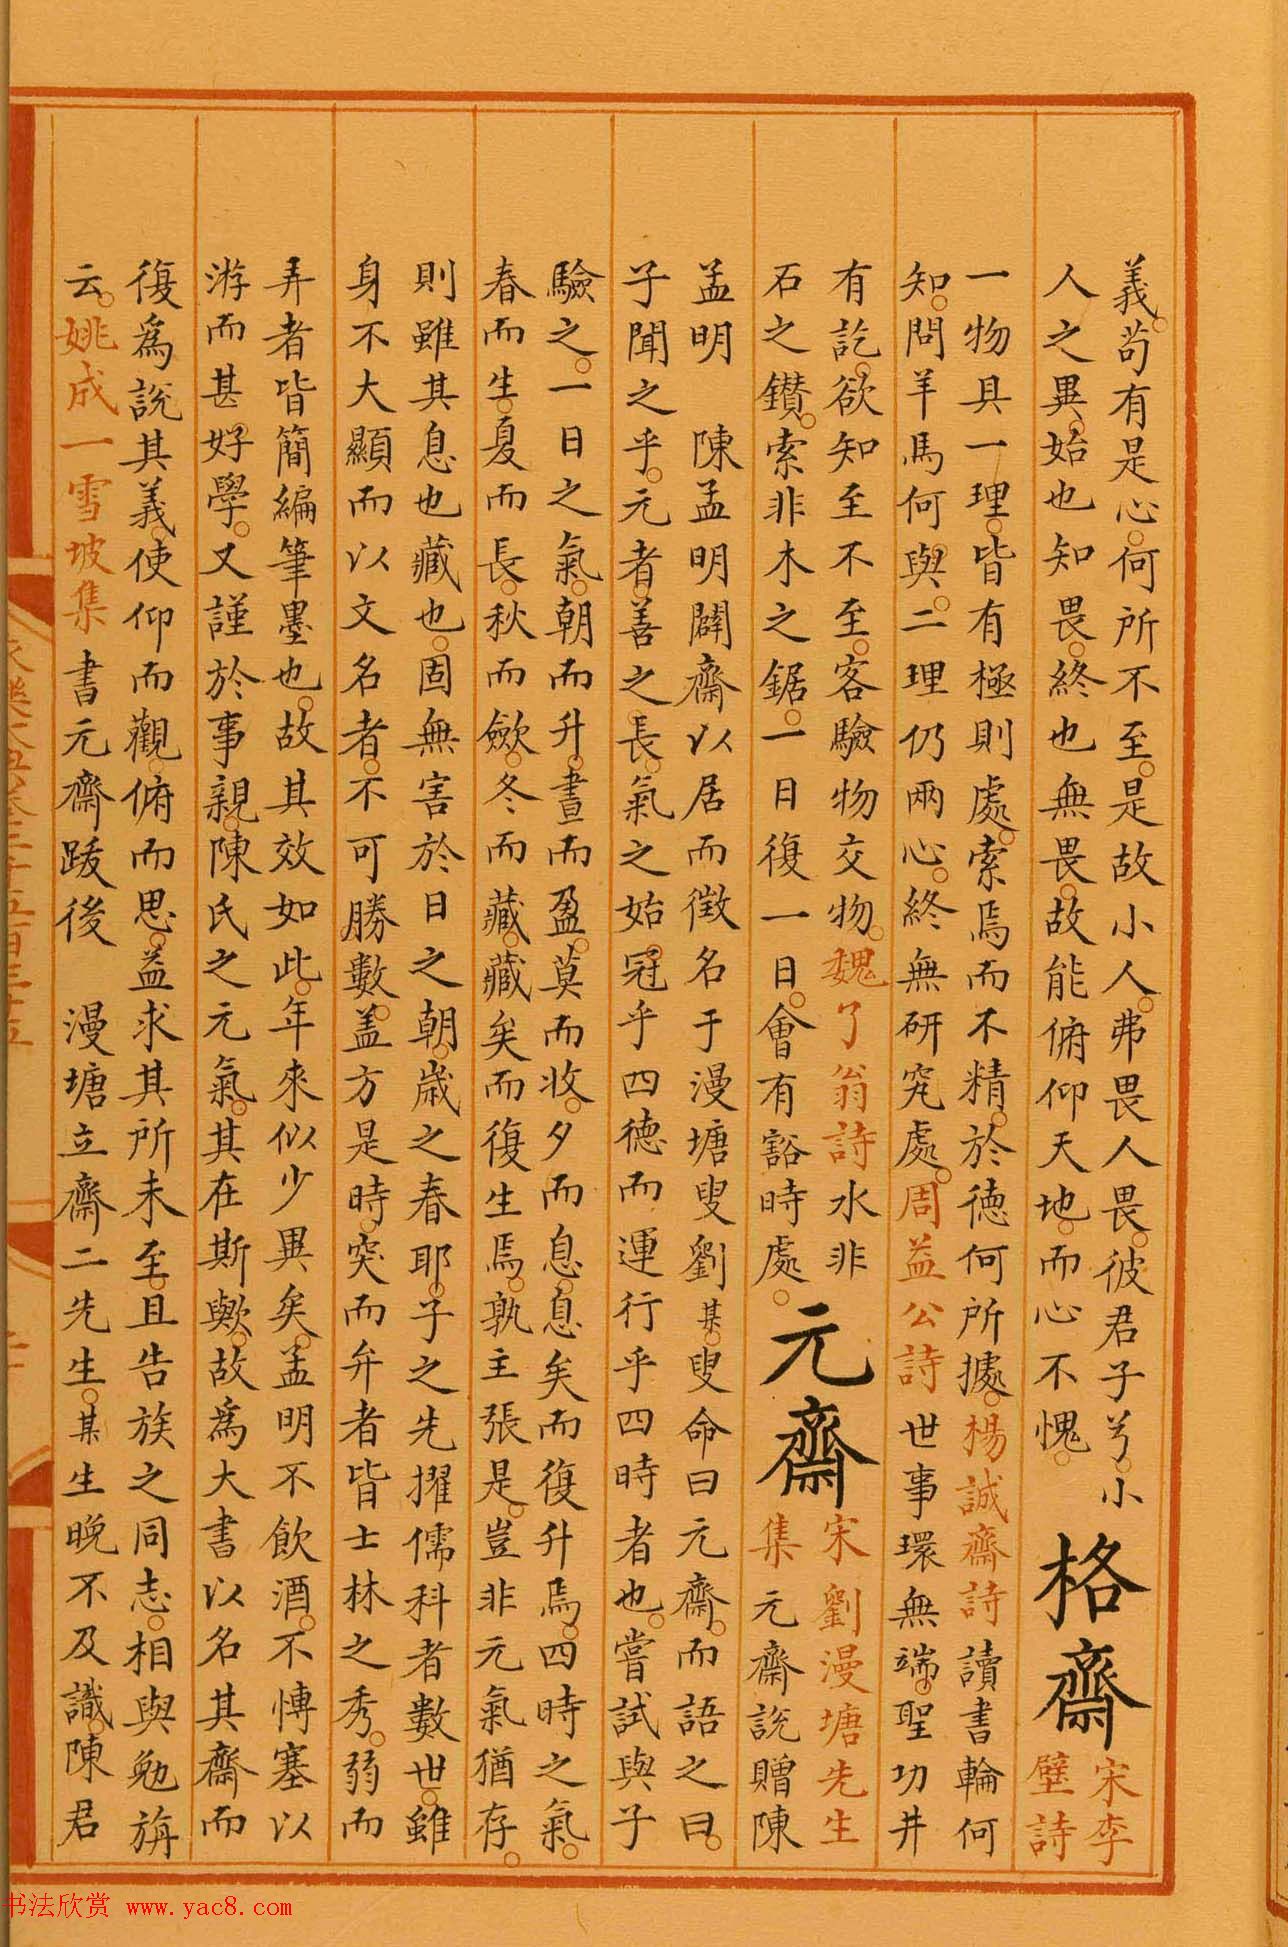 義苟有是心何所不至是故小人弗畏人畏彼君子兮小
人之異始也知畏終也無畏故能俯仰天地而心不愧
格齋
宋李
壁詩
一物具一理皆有極則處索焉而不精於德何所據楊誠齋詩讀書輪何
知問羊馬何與二理仍兩心終無研究處周益公詩世事環無端聖功井
有訖欲知至不至客驗物交物魏了翁詩水非
石之鑚索非木之鋸一日復一日會有豁時處
元齋
宋劉漫塘先生
集元齋說贈陳
孟明 陳孟明闢齋以居而徵名于漫塘叟劉某叟命曰元齋而語之曰
子聞之乎元者善之長氣之始冠乎四德而運行乎四時者也嘗試與子
驗之一日之氣朝而升晝而盈莫而收夕而息息矣而復升焉四時之氣
春而生夏而長秋而斂冬而藏藏矣而復生焉孰主張是豈非元氣猶存
則雖其息也藏也固無害於日之朝歲之春耶子之先擢儒科者數世雖
身不大顯而以文名者不可勝數蓋方是時突而弁者皆士林之秀弱而
弄者皆簡編筆墨也故其效如此年來似少異矣孟明不飲酒不愽塞以
游而甚好學又謹於事親陳氏之元氣其在斯歟故為大書以名其齋而
復為說其義使仰而觀俯而思益求其所未至且告族之同志相與勉旃
云姚成一雪坡集書元齋跋後 漫塘立齋二先生某生晚不及識陳君
书法欣赏 www.yac8.com